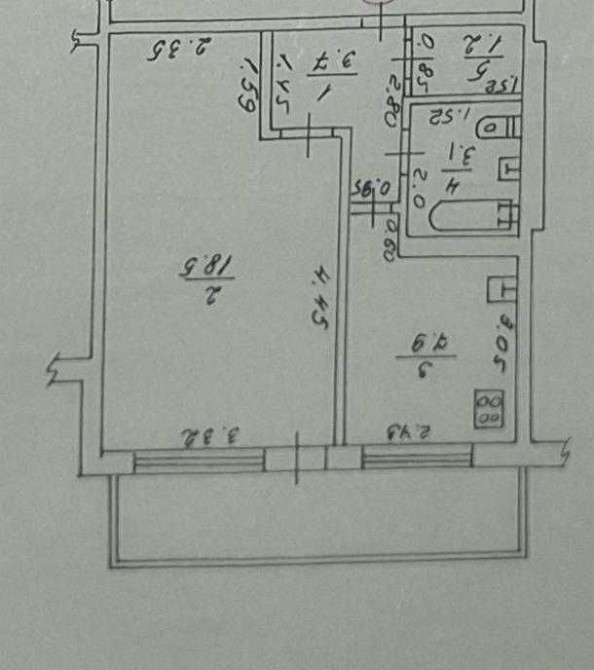 2.35
1.59
1.45
1
3.7
2.80
0.85
5
1.2
1.52
1.52
4
3.1
2.0
0.95
0.60
2
18.5
4.45
3
7.9
3.05
3.32
2.43